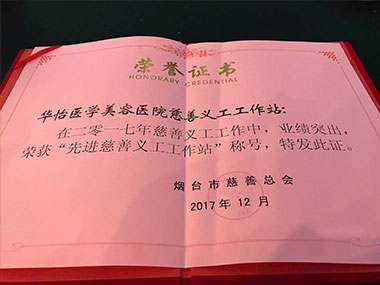 荣誉证书
HONORARY CREDENTIAL
华怡医学美容医院慈善义工工作站：
在二零一七年慈善义工工作中，业绩突出，
荣获“先进慈善义工工作站”称号，特发此证。
烟台市慈善总会
2017年12月